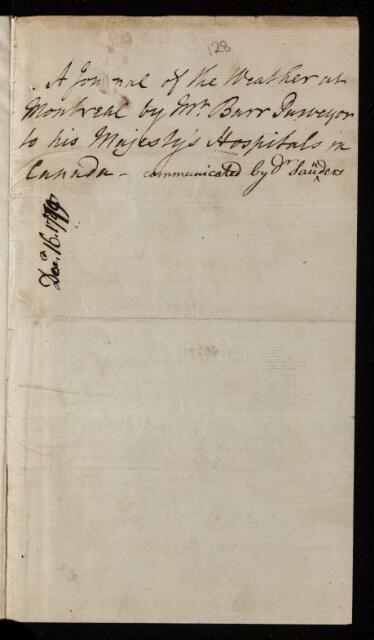 128
A Journal of the Weather at
Montreal by Mr. Barr Purveyor
to his Majesty's Hospitals in
Canada - communicated by Dr Saunders
Decr. 16.